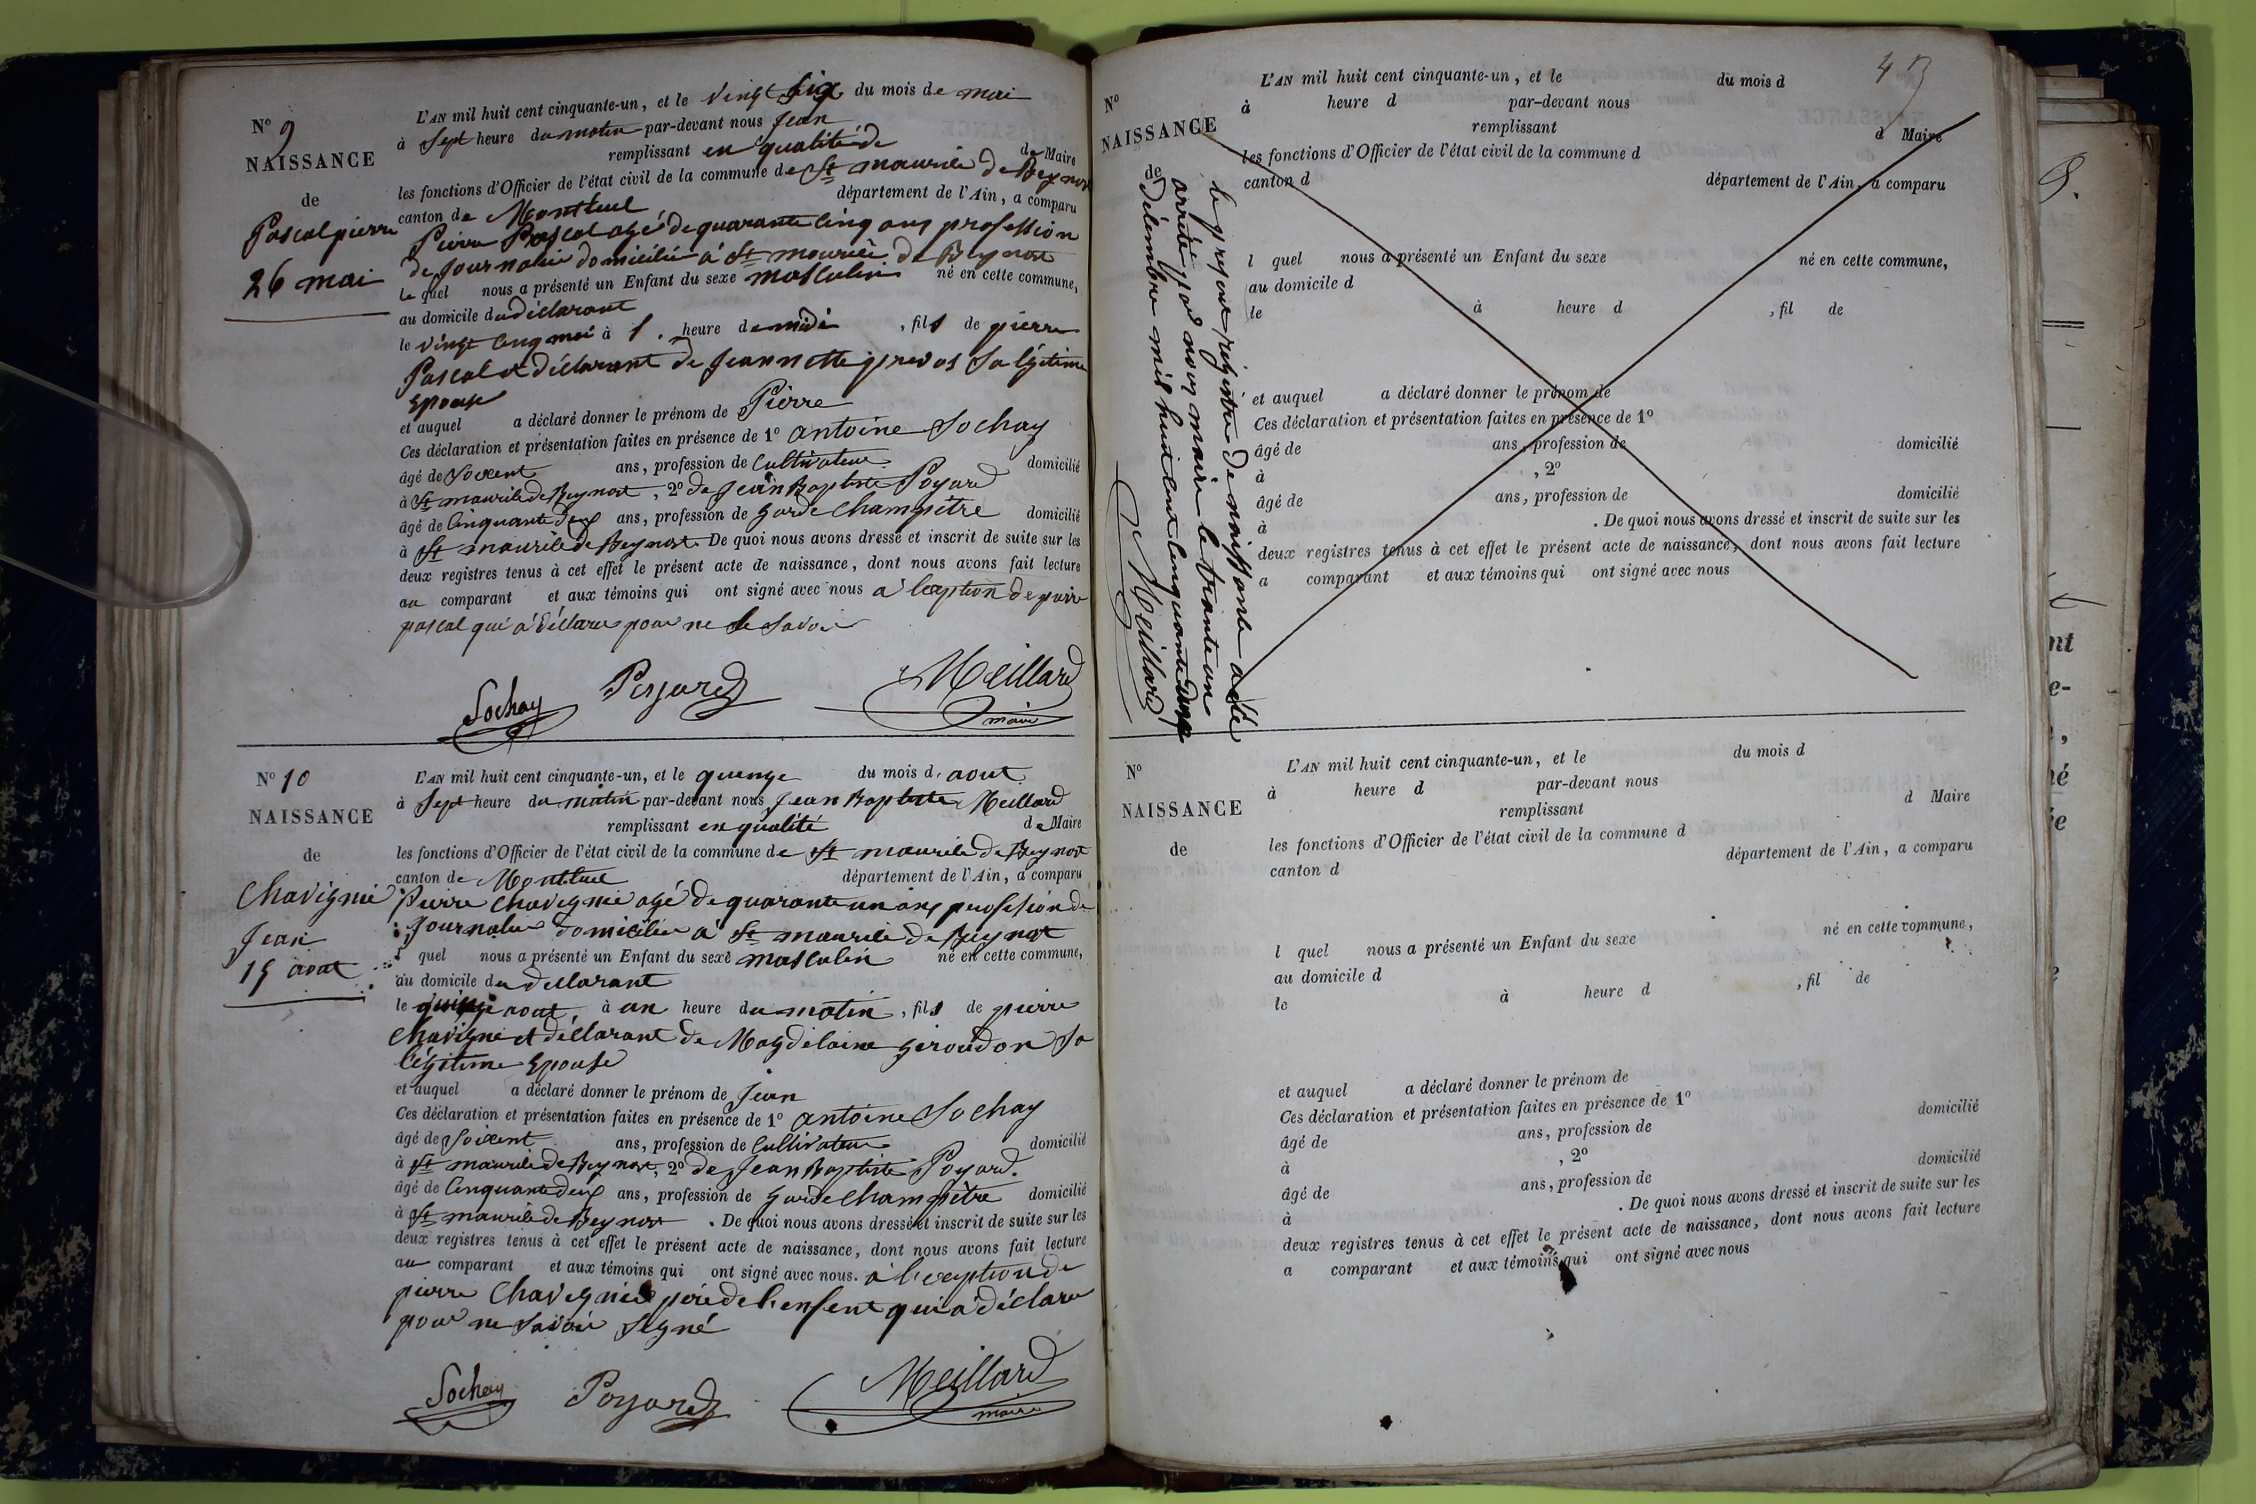 N° 9
NAISSANCE
de
Pascal pierre
26 mai
L'AN mil huit cent cinquante-un, et le vingt six du mois de mai
à Sept heure du matin par-devant nous Jean
remplissant en qualité de de Maire
les fonctions d'Officier de l'état civil de la commune de St maurice De Beynost
canton de Montluel département de l'Ain, a comparu
Pierre Pascal agé de quarante cinq ans profession
de Journalier domicilié à St maurice de Beynost
le quel nous a présenté un Enfant du sexe masculin né en cette commune,
au domicile du déclarant
le vingt cinq mai à 1. heure de midi , fils de pierre
Pascal et déclarant de Jeannette prevos Sa légitime
Epouse
et auquel a déclaré donner le prénom de Pierre
Ces déclaration et présentation faites en présence de 1° antoine Sochay
âgé de Soixent ans, profession de Cultivateur domicilié
à St maurice de Beynost, 2° de Jean Baptiste Poyard
âgé de Cinquante deux ans, profession de garde Champètre domicilié
à St maurice de Beynost. De quoi nous avons dressé et inscrit de suite sur les
deux registres tenus à cet effet le présent acte de naissance, dont nous avons fait lecture
au comparant et aux témoins qui ont signé avec nous a l'eception de pierre
pascal qui a déclare pour ne le Savoir
Sochay Poyard Meillard
maire
N° 10
NAISSANCE
de
Chavignié
Jean
15 aout
L'AN mil huit cent cinquante-un, et le quenze du mois d' aout
à Sept heure du matin par-devant nous Jean Baptiste Meillard
remplissant en qualité de Maire
les fonctions d'Officier de l'état civil de la commune de St maurice de Beynost
canton de Montluel département de l'Ain, a comparu
Pierre Chavignié agé de quarante un ans profession de
Journalier domicilier à St maurice de Beynost
l quel nous a présenté un Enfant du sexe masculin né en cette commune,
au domicile du déclarant
le quinze aout, à un heure du matin, fils de pierre
Chavignié et déclarant de Magdelaine giroudon Sa
légitime Epouse
et auquel a déclaré donner le prénom de Jean
Ces déclaration et présentation faites en présence de 1° antoine Sochay
âgé de Soixent ans, profession de Cultivateur domicilié
à St maurice de Beynost, 2° de Jean Baptiste Poyard.
âgé de Cinquante deux ans, profession de garde Champètre domicilié
à St maurice de Beynost . De quoi nous avons dressé et inscrit de suite sur les
deux registres tenus à cet effet le présent acte de naissance, dont nous avons fait lecture
au comparant et aux témoins qui ont signé avec nous. à l'eception de
pierre Chavignié père de l'enfent qui a déclare
pour ne Savoir Segné
Sochay Poyard Meillard
maire
N°
NAISSANCE
de
L'AN mil huit cent cinquante-un, et le du mois d
à heure d par-devant nous
remplissant d Maire
les fonctions d'Officier de l'état civil de la commune d
canton d département de l'Ain, a comparu
l quel nous a présenté un Enfant du sexe né en cette commune,
au domicile d
le à heure d , fil de
et auquel a déclaré donner le prénom de
Ces déclaration et présentation faites en présence de 1°
âgé de ans, profession de domicilié
à , 2°
âgé de ans, profession de domicilié
à . De quoi nous avons dressé et inscrit de suite sur les
deux registres tenus à cet effet le présent acte de naissance, dont nous avons fait lecture
a comparant et aux témoins qui ont signé avec nous
le present registre de naissance a été
arrêté par nous maire le trante un
Décembre mil huit cent cinquante
Meillard
N°
NAISSANCE
de
L'AN mil huit cent cinquante-un, et le du mois d
à heure d par-devant nous
remplissant d Maire
les fonctions d'Officier de l'état civil de la commune d
canton d département de l'Ain, a comparu
l quel nous a présenté un Enfant du sexe né en cette commune,
au domicile d
le à heure d , fil de
et auquel a déclaré donner le prénom de
Ces déclaration et présentation faites en présence de 1°
âgé de ans, profession de domicilié
à , 2°
âgé de ans, profession de domicilié
à . De quoi nous avons dressé et inscrit de suite sur les
deux registres tenus à cet effet le présent acte de naissance, dont nous avons fait lecture
a comparant et aux témoins qui ont signé avec nous